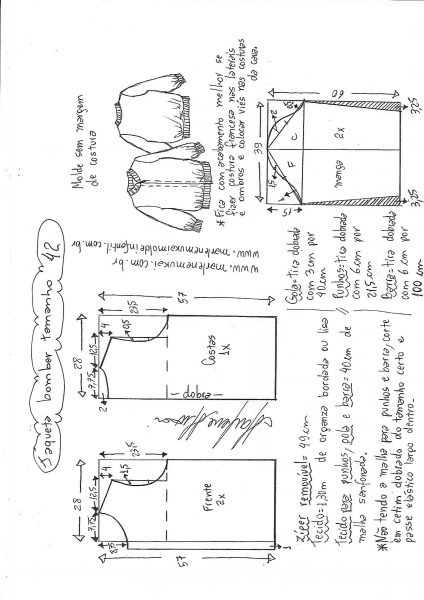 Jaqueta bomber tamanho 42
Molde sem margem
de costura
* Fica com acabamento melhor se
fizer costura francesa nas laterais
e ombros e colocar viés nas costuras
da cava.
www.marlenemukai.com.br
www.marlenemukaimoldeinfantil.com.br
28
7,75
12,5
4
23,5
1,5
8,75
57
Frente
2x
28
7,75
12,5
4
23,5
0,5
2
57
Costas
1x
dobra
39
60
15
1,5
2
F
C
manga
2x
3,25
3,25
Gola = tira dobrada
com 3 cm por
40 cm
Punhos = tira dobrada
com 6 cm por
21,5 cm
Barra = tira dobrada
com 6 cm por
100 cm
Ziper removível = 49 cm
Tecido = 1,30m de organza bordada ou lisa
Tecido para punhos, gola e barra = 40 cm de
malha sanfonada.
* Não tendo a malha para punhos e barra, corte
em cetim dobrado do tamanho certo e
passe elástico largo dentro.